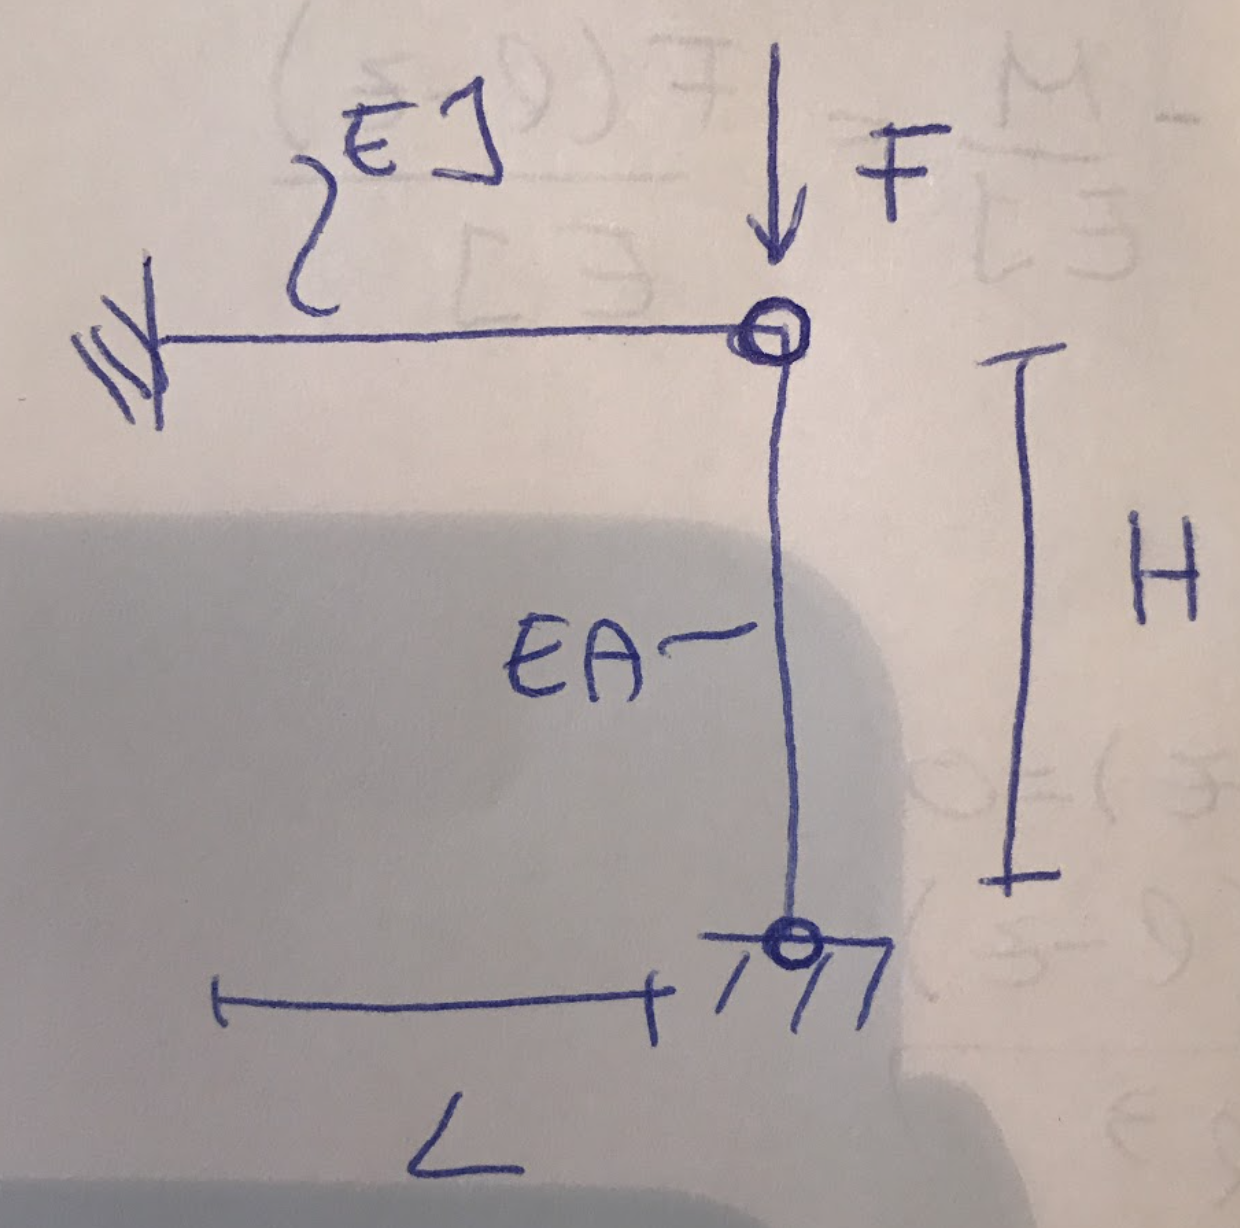 EJ
F
H
EA
L